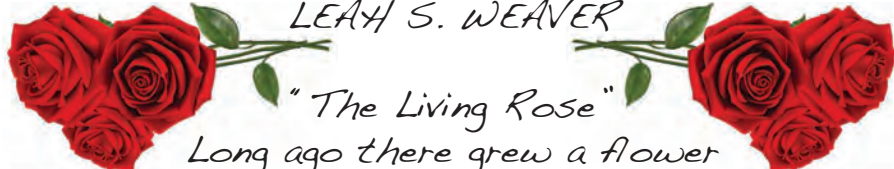 LEAH S. WEAVER
"The Living Rose"
Long ago there grew a flower